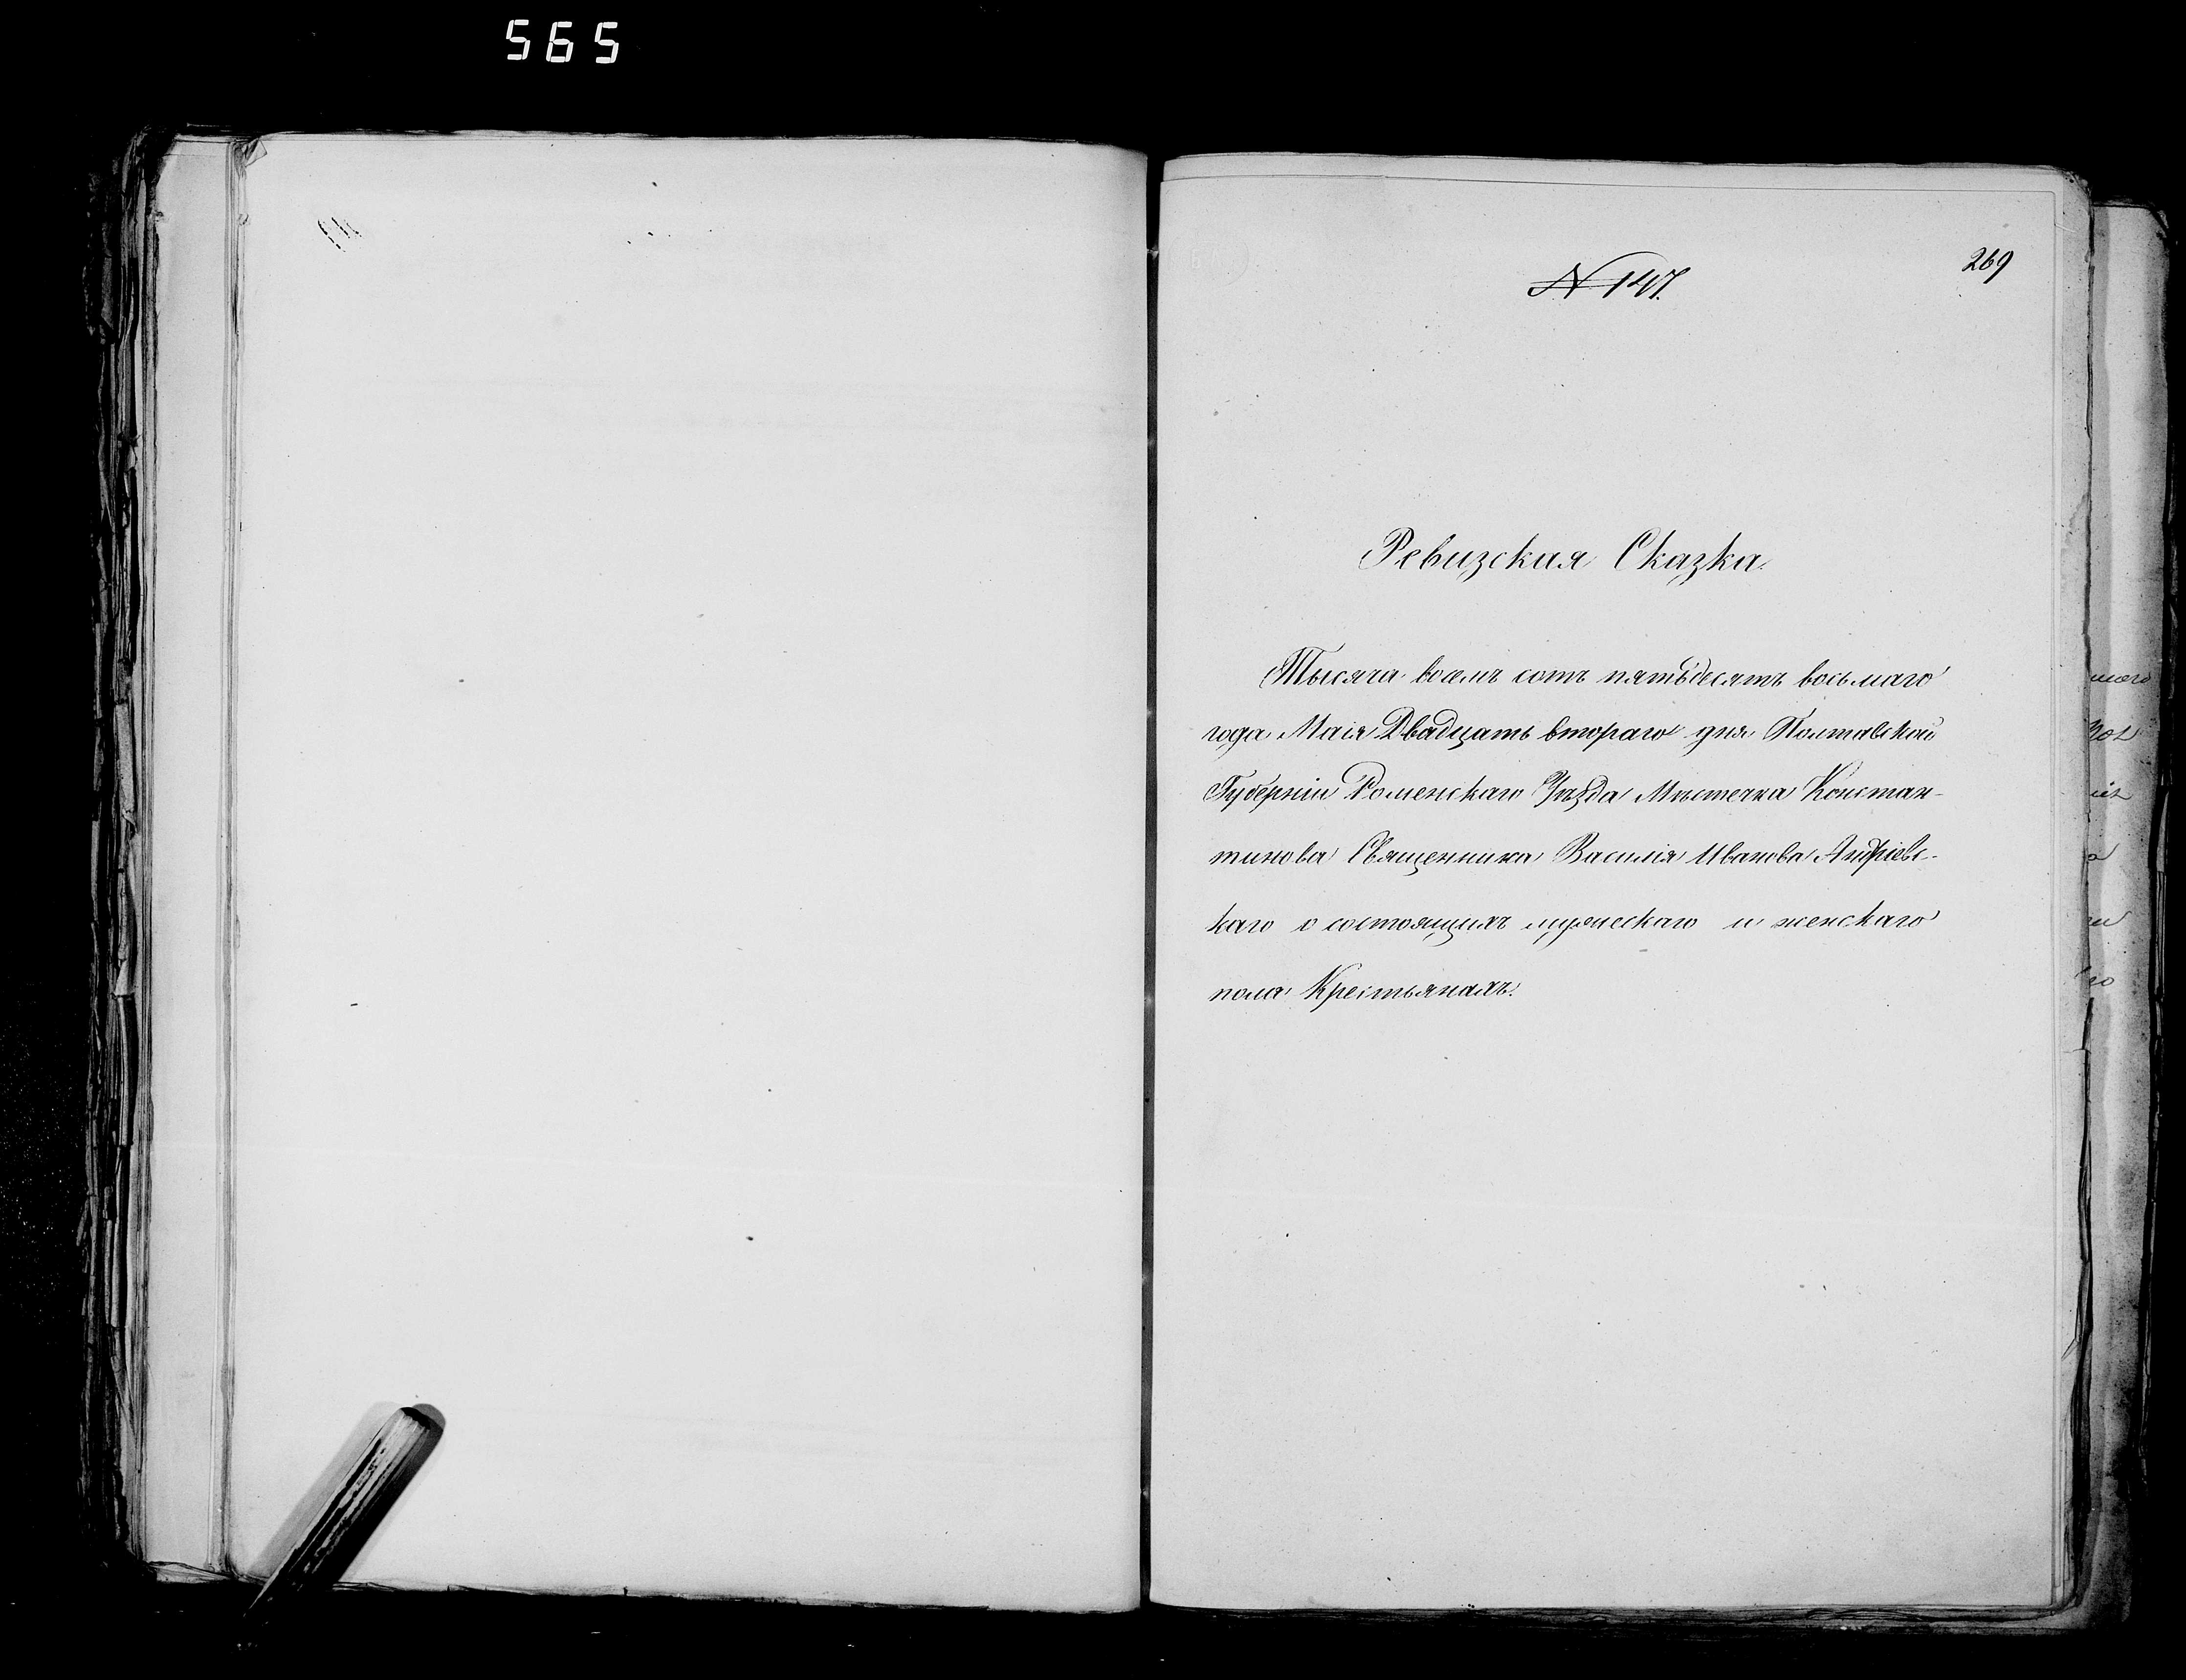 565
269
N 147.
Ревизская Сказка
Тысяча восемь сотъ пятьдесятъ восьмаго
года Маія Двадцать втораго дня Полтавской
Губерніи Роменскаго Уѣзда Мѣстечка Констан-
тинова Священника Василія Иванова Андріевс-
каго о состоящихъ мужескаго и женскаго
пола Крестьянахъ.